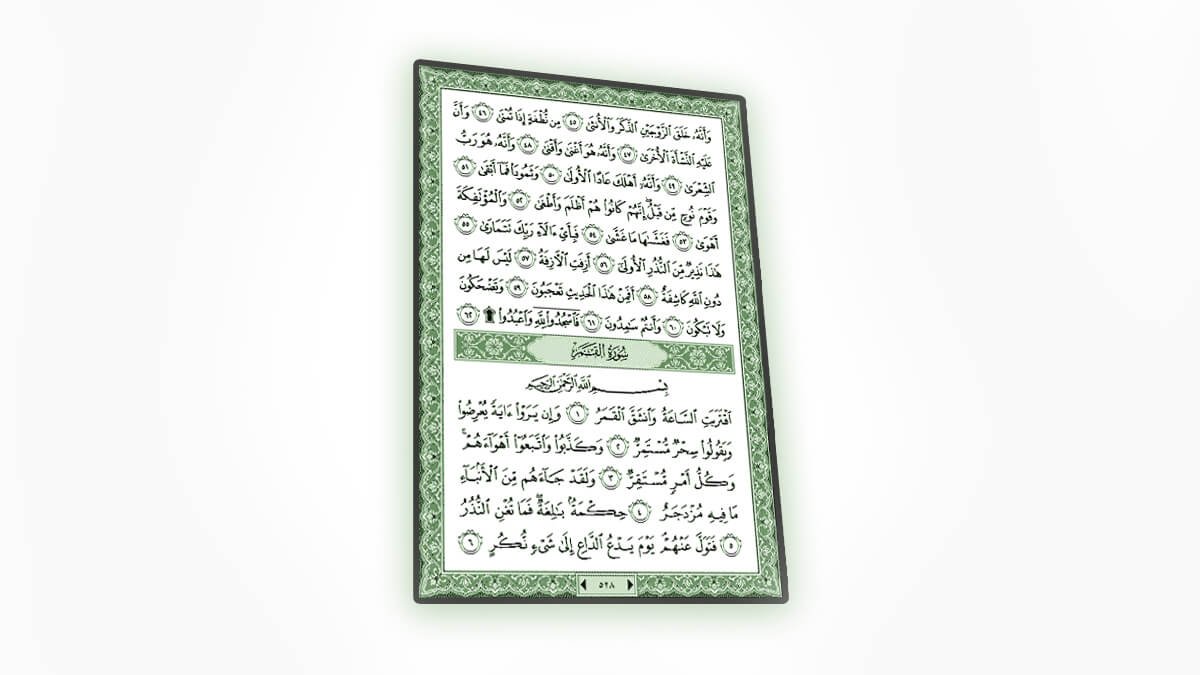 وَأَنَّهُۥ خَلَقَ ٱلزَّوْجَيْنِ ٱلذَّكَرَ وَٱلْأُنثَىٰ ٤٥ مِن نُّطْفَةٍ إِذَا تُمْنَىٰ ٤٦ وَأَنَّ
عَلَيْهِ ٱلنَّشْأَةَ ٱلْأُخْرَىٰ ٤٧ وَأَنَّهُۥ هُوَ أَغْنَىٰ وَأَقْنَىٰ ٤٨ وَأَنَّهُۥ هُوَ رَبُّ
ٱلشِّعْرَىٰ ٤٩ وَأَنَّهُۥٓ أَهْلَكَ عَادًا ٱلْأُولَىٰ ٥٠ وَثَمُودَا۟ فَمَآ أَبْقَىٰ ٥١
وَقَوْمَ نُوحٍ مِّن قَبْلُ ۖ إِنَّهُمْ كَانُوا۟ هُمْ أَظْلَمَ وَأَطْغَىٰ ٥٢ وَٱلْمُؤْتَفِكَةَ
أَهْوَىٰ ٥٣ فَغَشَّىٰهَا مَا غَشَّىٰ ٥٤ فَبِأَىِّ ءَالَآءِ رَبِّكَ تَتَمَارَىٰ ٥٥
هَٰذَا نَذِيرٌ مِّنَ ٱلنُّذُرِ ٱلْأُولَىٰٓ ٥٦ أَزِفَتِ ٱلْءَازِفَةُ ٥٧ لَيْسَ لَهَا مِن
دُونِ ٱللَّهِ كَاشِفَةٌ ٥٨ أَفَمِنْ هَٰذَا ٱلْحَدِيثِ تَعْجَبُونَ ٥٩ وَتَضْحَكُونَ
وَلَا تَبْكُونَ ٦٠ وَأَنتُمْ سَٰمِدُونَ ٦١ فَٱسْجُدُوا۟ لِلَّهِ وَٱعْبُدُوا۟ ۩ ٦٢
سُورَةُ ٱلْقَمَرِ
بِسْمِ ٱللَّهِ ٱلرَّحْمَٰنِ ٱلرَّحِيمِ
ٱقْتَرَبَتِ ٱلسَّاعَةُ وَٱنشَقَّ ٱلْقَمَرُ ١ وَإِن يَرَوْا۟ ءَايَةً يُعْرِضُوا۟
وَيَقُولُوا۟ سِحْرٌ مُّسْتَمِرٌّ ٢ وَكَذَّبُوا۟ وَٱتَّبَعُوٓا۟ أَهْوَآءَهُمْ ۚ
وَكُلُّ أَمْرٍ مُّسْتَقِرٌّ ٣ وَلَقَدْ جَآءَهُم مِّنَ ٱلْأَنۢبَآءِ
مَا فِيهِ مُزْدَجَرٌ ٤ حِكْمَةٌۢ بَٰلِغَةٌ ۖ فَمَا تُغْنِ ٱلنُّذُرُ
٥ فَتَوَلَّ عَنْهُمْ ۘ يَوْمَ يَدْعُ ٱلدَّاعِ إِلَىٰ شَىْءٍ نُّكُرٍ ٦
٥٢٨